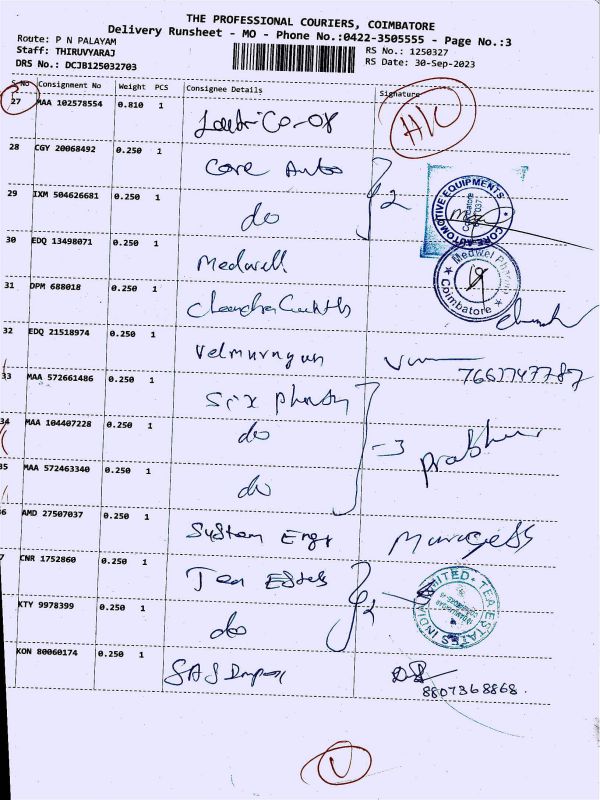 THE PROFESSIONAL COURIERS, COIMBATORE
Delivery Runsheet - MO - Phone No.:0422-3505555 - Page No.:3
Route: P N PALAYAM
RS No.: 1250327
Staff: THIRUVYARAJ
RS Date: 30-Sep-2023
DRS No.: DCJB125032703
S No Consignment No Weight PCS Consignee Details Signature
27 MAA 102578554 0.810 1
28 CGY 20068492 0.250 1 Core Auto 2
CORE AUTOMOTIVE EQUIPMENTS Coimbatore
29 IXM 504626681 0.250 1 do
30 EDQ 13498071 0.250 1 Medwell
Medwel Coimbatore
31 DPM 688018 0.250 1
32 EDQ 21518974 0.250 1 Velmurugan
7667747787
33 MAA 572661486 0.250 1 Six
34 MAA 104407228 0.250 1 do 3 Prabhu
35 MAA 572463340 0.250 1 do
6 AMD 27507037 0.250 1 System Engg
7 CNR 1752860 0.250 1 Tea Estates 2
TEA ESTATES INDIA LIMITED
KTY 9978399 0.250 1 do
KON 80060174 0.250 1 SAS
8807368868